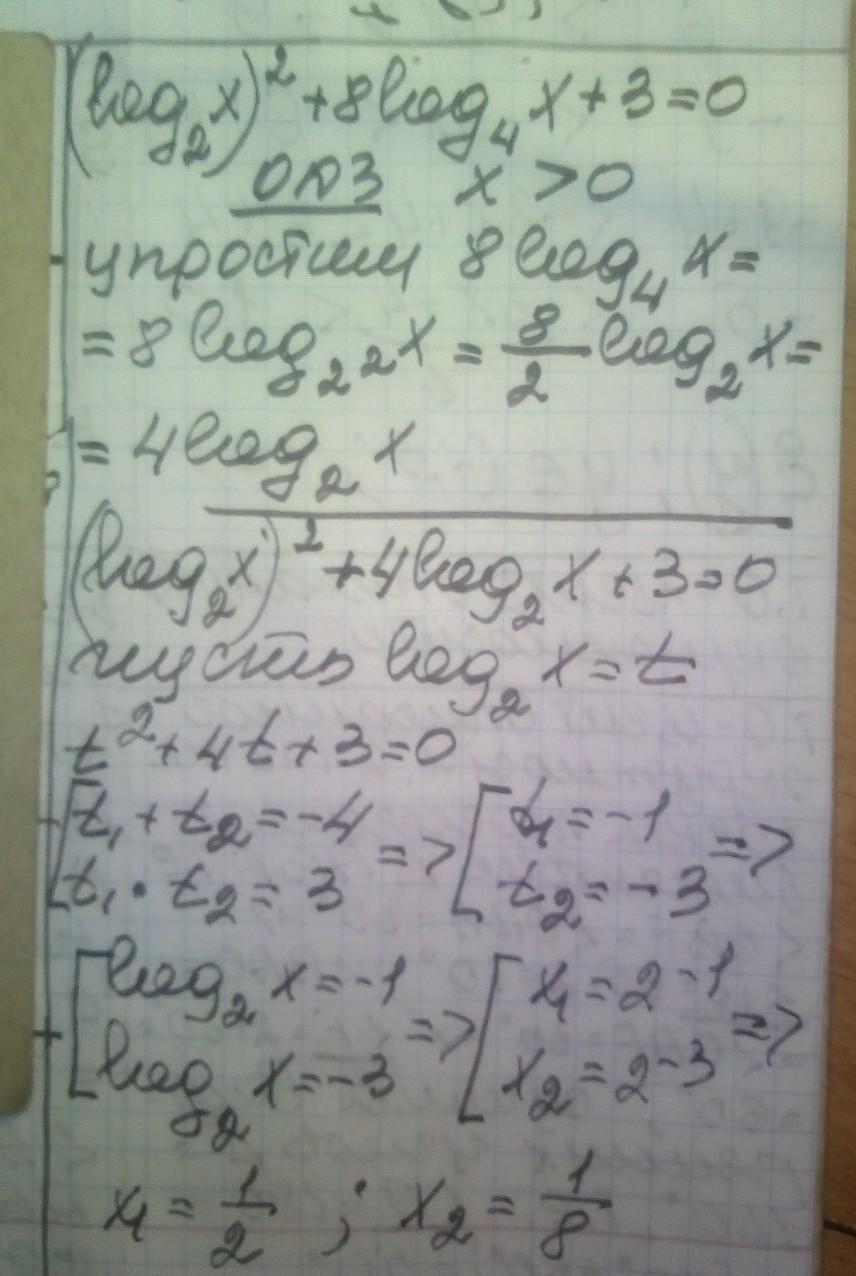 (log₂x)² + 8log₄x + 3 = 0
ОДЗ x > 0
упростим 8log₄x =
= 8log₂²x = 8/2 log₂x =
= 4log₂x
(log₂x)² + 4log₂x + 3 = 0
пусть log₂x = t
t² + 4t + 3 = 0
[t₁ + t₂ = -4 => [t₁ = -1 =>
t₁ · t₂ = 3 t₂ = -3
[log₂x = -1 => [x₁ = 2⁻¹ =>
log₂x = -3 x₂ = 2⁻³
x₁ = 1/2 ; x₂ = 1/8